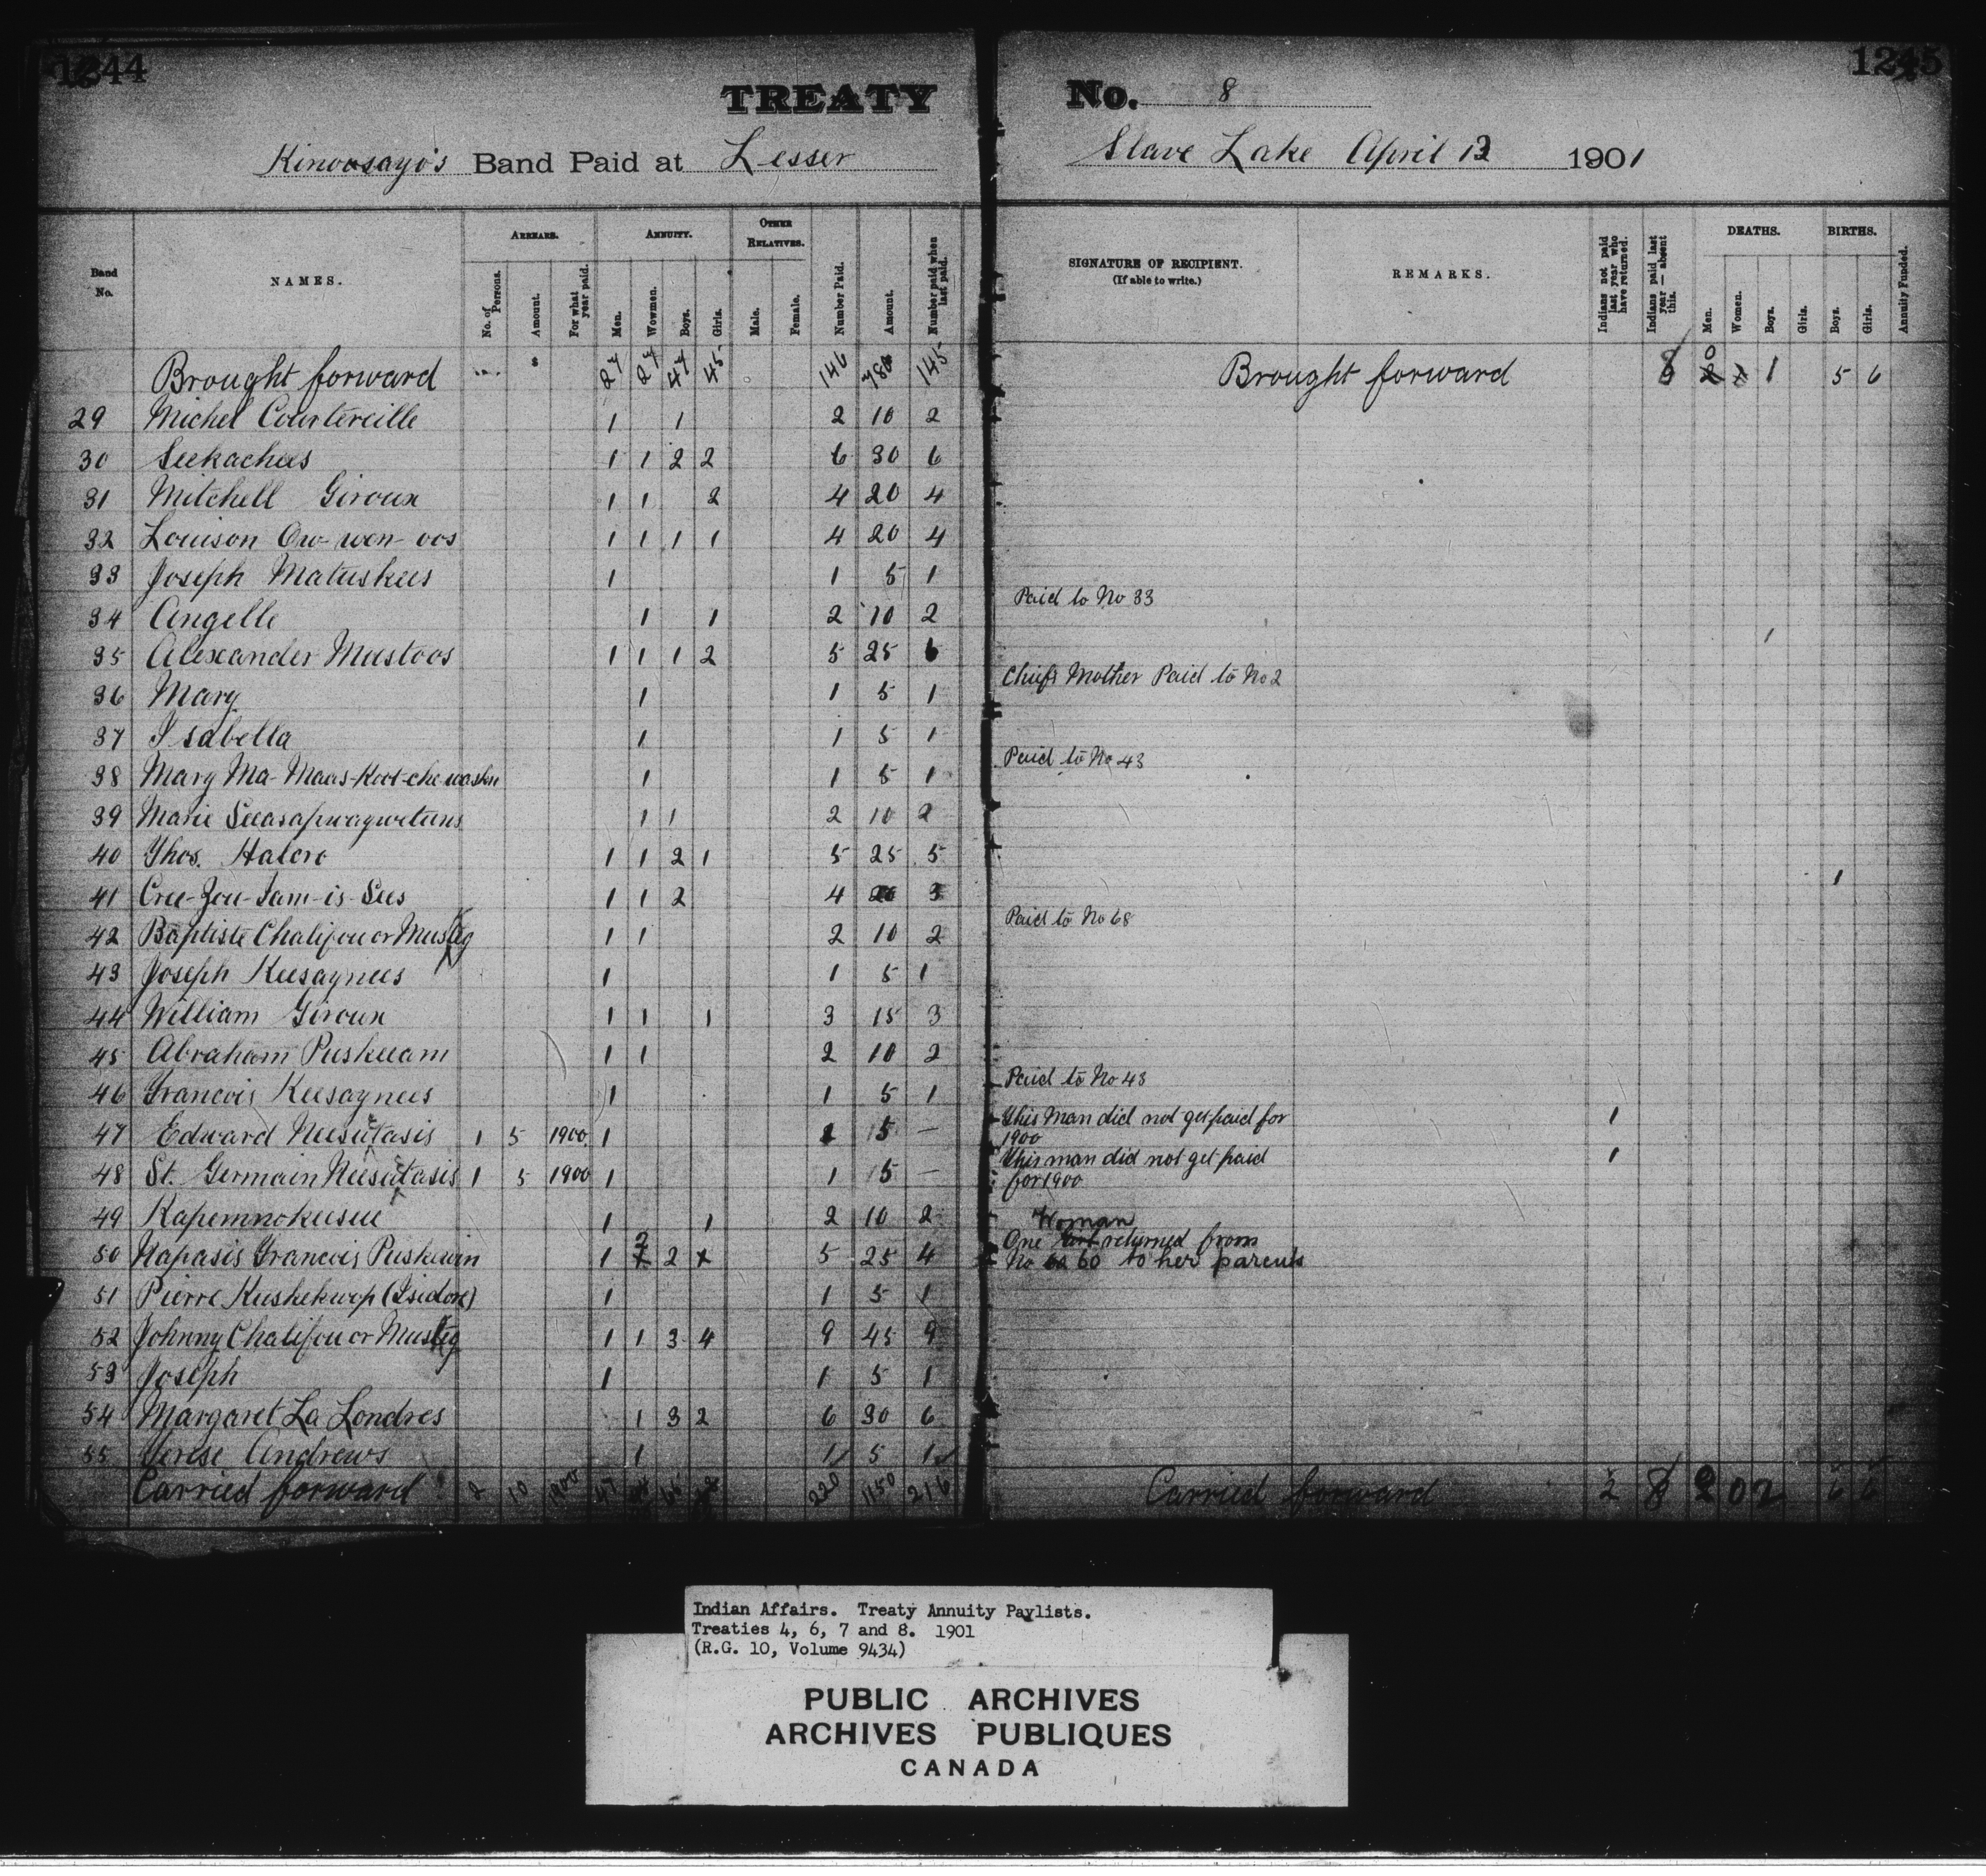 1244
1245
TREATY No. 8
Kinoosayo's Band Paid at Lesser Slave Lake April 12 1901
Band No. NAMES. ARREARS. No. of Persons. Amount. For what year paid. ANNUITY. Men. Wowmen. Boys. Girls. OTHER RELATIVES. Male. Female. Number Paid. Amount. Number paid when last paid.
SIGNATURE OF RECIPIENT. (If able to write.) REMARKS. Indians not paid last year who have returned. Indians paid last year — absent this. DEATHS. Men. Women. Boys. Girls. BIRTHS. Boys. Girls. Annuity Funded.
Brought forward 27 27 47 45 146 145 Brought forward 8 1 5 6
29 Michel Courtereille 1 1 2 10 2
30 Seekachees 1 1 2 2 6 30 6
31 Mitchell Giroux 1 1 2 4 20 4
32 Louison Ow-wen-oos 1 1 1 1 4 20 4
33 Joseph Matuskees 1 1 5 1
34 Angelle 1 1 2 10 2 Paid to No 33
35 Alexander Mustoos 1 1 1 2 5 25 6 1
36 Mary 1 1 5 1 Chiefs Mother Paid to No 2
37 Isabella 1 1 5 1
38 Mary Ma-Maus-Koot-che washn 1 1 5 1 Paid to No 43
39 Marie Seeasapwagwetuns 1 1 2 10 2
40 Thos. Halcro 1 1 2 1 5 25 5
41 Cree-Zou-Sam-is-Sees 1 1 2 4 20 3 1
42 Baptiste Chalifou or Musteg 1 1 2 10 2 Paid to No 68
43 Joseph Keesaynees 1 1 5 1
44 William Giroux 1 1 1 3 15 3
45 Abraham Puskuam 1 1 2 10 2
46 Francois Keesaynees 1 1 5 1 Paid to No 43
47 Edward Neesutasis 1 5 1900 1 1 5 — This Man did not get paid for 1900 1
48 St. Germain Neesutasis 1 5 1900 1 1 5 — This man did not get paid for 1900 1
49 Kapemnokusue 1 1 2 10 2
50 Napasis Francois Puskwin 1 2 2 5 25 4 One Woman returned from No 60 to her parents
51 Pierre Kushekwep (Isidore) 1 1 5 1
52 Johnny Chalifou or Musteg 1 1 3 4 9 45 9
53 Joseph 1 1 5 1
54 Margaret La Londres 1 3 2 6 30 6
55 Terese Andrews 1 1 5 1
Carried forward 2 10 1900 47 220 1150 216 Carried forward 2 8 2 0 2 6 6
Indian Affairs. Treaty Annuity Paylists.
Treaties 4, 6, 7 and 8. 1901
(R.G. 10, Volume 9434)
PUBLIC ARCHIVES
ARCHIVES PUBLIQUES
CANADA